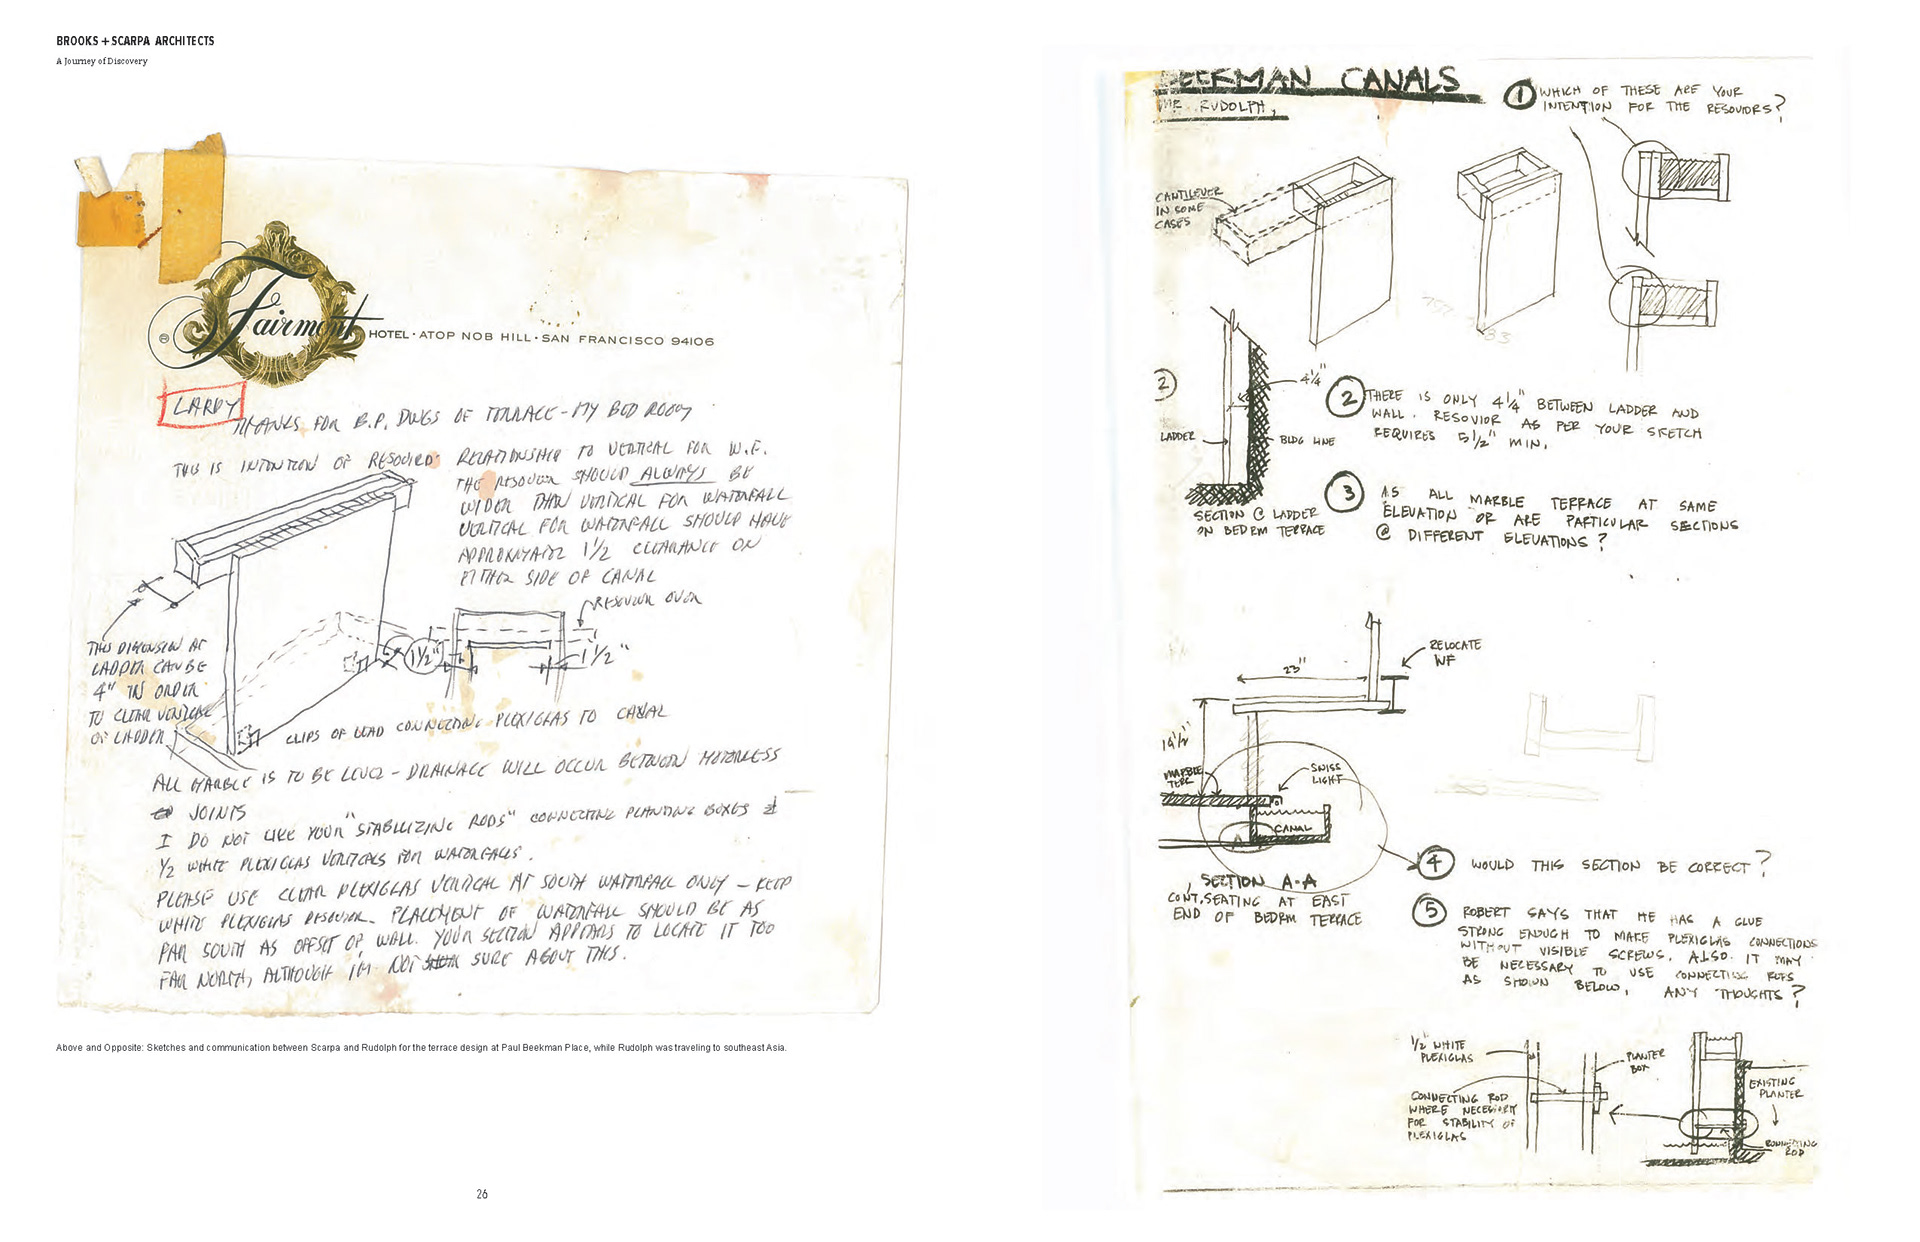 BROOKS + SCARPA ARCHITECTS
A Journey of Discovery
Fairmont
HOTEL · ATOP NOB HILL · SAN FRANCISCO 94106
LARRY
THANKS FOR B.P. DWGS OF TERRACE - MY BED ROOM
THIS IS INTENTION OF RESOVIR
RELATIONSHIP TO VERTICAL FOR W.F.
THE RESOVOIR SHOULD ALWAYS BE
WIDER THAN VERTICAL FOR WATERFALL
VERTICAL FOR WATERFALL SHOULD HAVE
1 1/2 CLEARANCE ON
EITHER SIDE OF CANAL
OVER
1 1/2"
1 1/2"
THIS DIMENSION AT
LADDER CAN BE
4" IN ORDER
TO CLEAR VERTICAL
OF LADDER
CLIPS OF LEAD CONNECTING PLEXIGLAS TO CANAL
ALL MARBLE IS TO BE LEVEL - DRAINAGE WILL OCCUR BETWEEN MOTORLESS
JOINTS
I DO NOT LIKE YOUR "STABILIZING RODS" CONNECTING PLANTING BOXES
1/2 WHITE PLEXIGLAS VERTICALS FOR WATERFALLS.
PLEASE USE CLEAR PLEXIGLAS VERTICAL AT SOUTH WATERFALL ONLY - KEEP
WHITE PLEXIGLAS RESOVIR. PLACEMENT OF WATERFALL SHOULD BE AS
FAR SOUTH AS OFFSET OF WALL. YOUR SECTION APPEARS TO LOCATE IT TOO
FAR NORTH, ALTHOUGH I'M NOT SURE ABOUT THIS.
Above and Opposite: Sketches and communication between Scarpa and Rudolph for the terrace design at Paul Beekman Place, while Rudolph was traveling to southeast Asia.
26
BEEKMAN CANALS
MR. RUDOLPH,
1 WHICH OF THESE ARE YOUR
INTENTION FOR THE RESOVIORS?
CANTILEVER
IN SOME
CASES
2
4 1/4"
LADDER
BLDG LINE
SECTION @ LADDER
ON BEDRM TERRACE
2 THERE IS ONLY 4 1/4" BETWEEN LADDER AND
WALL. RESOVIOR AS PER YOUR SKETCH
REQUIRES 5 1/2" MIN.
3 IS ALL MARBLE TERRACE AT SAME
ELEVATION OR ARE PARTICULAR SECTIONS
@ DIFFERENT ELEVATIONS?
RELOCATE
WF
23"
MARBLE
TERR
SWISS
LIGHT
CANAL
SECTION A-A
CONT. SEATING AT EAST
END OF BEDRM TERRACE
4 WOULD THIS SECTION BE CORRECT?
5 ROBERT SAYS THAT HE HAS A GLUE
STRONG ENOUGH TO MAKE PLEXIGLAS CONNECTIONS
WITHOUT VISIBLE SCREWS. ALSO IT MAY
BE NECESSARY TO USE CONNECTING RODS
AS SHOWN BELOW. ANY THOUGHTS?
1/2" WHITE
PLEXIGLAS
PLANTER
BOX
CONNECTING ROD
WHERE NECESSARY
FOR STABILITY OF
PLEXIGLAS
EXISTING
PLANTER
CONNECTING
ROD